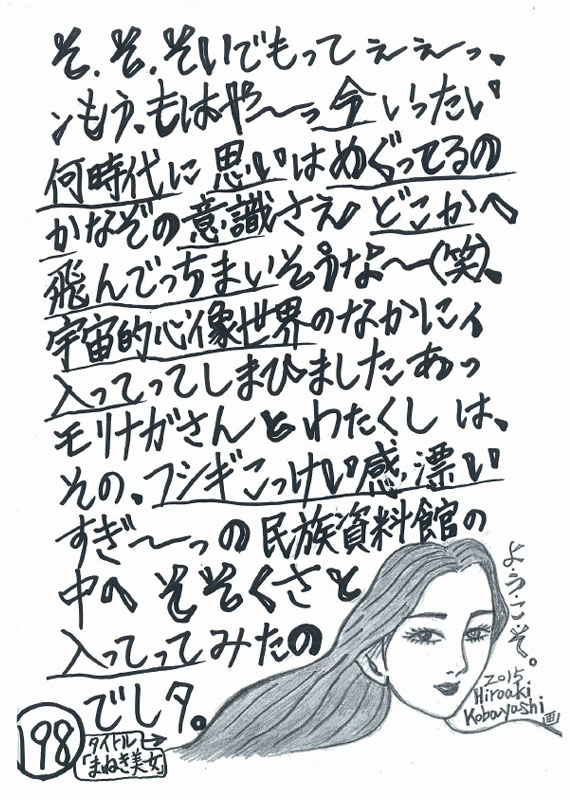 そ、そ、そいでもってぇぇ〜っ、
ンもう、もはや〜っ今いったい
何時代に思いはめぐってるの
かなぞの意識さえどこかへ
飛んでっちまいそうな〜(笑)、
宇宙的心像世界のなかにィ
入ってってしまひましたあっ
モリナガさんとわたくしは、
その、フシギこっけい感、漂い
すぎ〜っの民族資料館の
中へそそくさと
入ってってみたの
でしタ。
よ・う・こ・そ。
2015
Hiroaki
Kobayashi
画
198
タイトル→
「まねき美女」